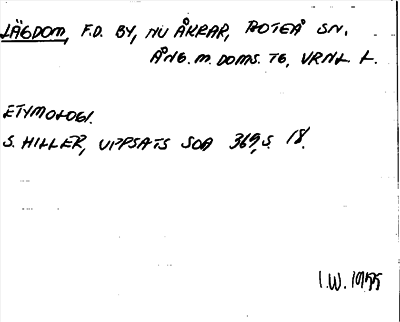 LÄGDOM, F.D. BY, NU ÅKRAR, BOTEÅ SN.
ÅNG. M. DOMS. TG, VRNL L.
ETYMOLOGI.
S. HILLER, UPPSATS SOA 369, S. 18.
I.W. 1955